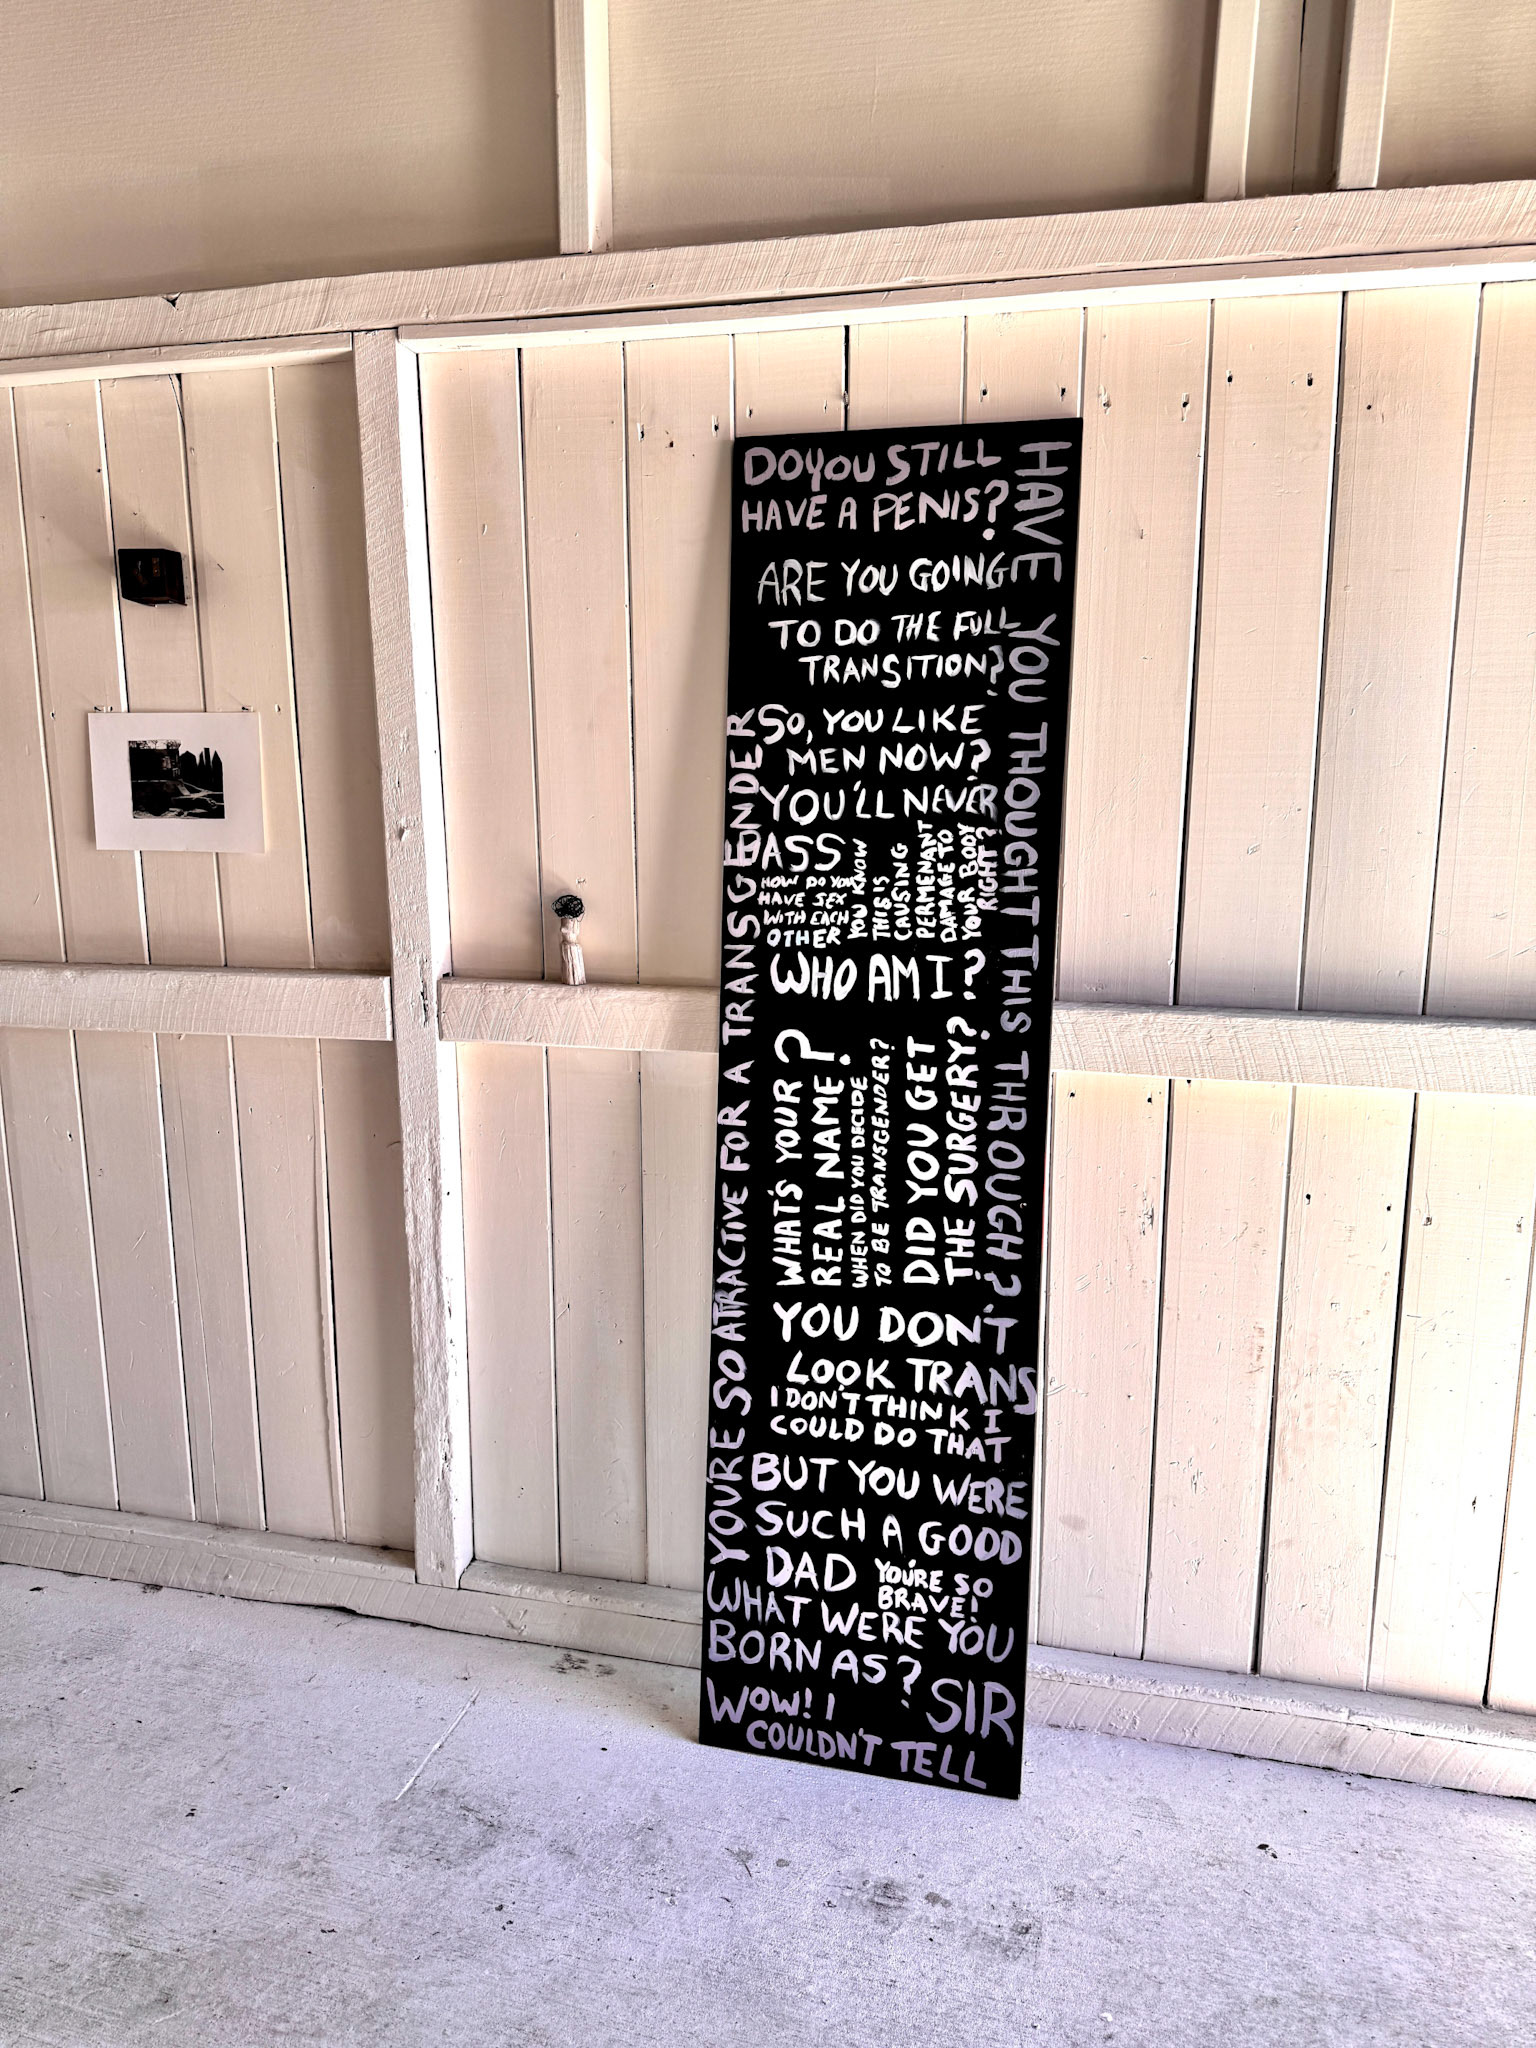 DO YOU STILL
HAVE A PENIS?
HAVE YOU THOUGHT THIS THROUGH?
ARE YOU GOING
TO DO THE FULL
TRANSITION?
SO, YOU LIKE
MEN NOW?
YOU'LL NEVER
PASS
HOW DO YOU
HAVE SEX
WITH EACH
OTHER
YOU KNOW
THIS IS
CAUSING
PERMENANT
DAMAGE TO
YOUR BODY
RIGHT?
WHO AM I?
WHAT'S YOUR
REAL NAME?
WHEN DID YOU DECIDE
TO BE TRANSGENDER?
DID YOU GET
THE SURGERY?
YOU'RE SO ATTRACTIVE FOR A TRANSGENDER
YOU DON'T
LOOK TRANS
I DON'T THINK I
COULD DO THAT
BUT YOU WERE
SUCH A GOOD
DAD
YOU'RE SO
BRAVE!
WHAT WERE YOU
BORN AS?
SIR
WOW! I
COULDN'T TELL